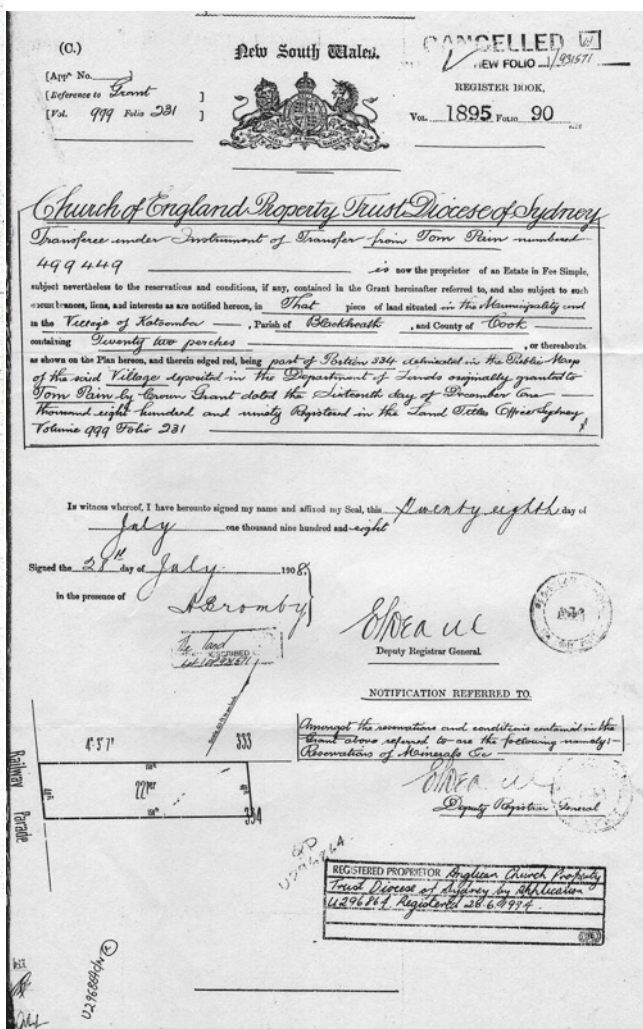 (C.)
New South Wales.
CANCELLED
NEW FOLIO 1/931571
[Appn No. ]
[Reference to Grant ]
[Vol. 999 Folio 231 ]
REGISTER BOOK,
VOL. 1895 FOLIO 90
Church of England Property Trust Diocese of Sydney
Transferee under Instrument of Transfer from Tom Pain numbered
499449 is now the proprietor of an Estate in Fee Simple,
subject nevertheless to the reservations and conditions, if any, contained in the Grant hereinafter referred to, and also subject to such
encumbrances, liens, and interests as are notified hereon, in That piece of land situated in the Municipality and
in the Village of Katoomba , Parish of Blackheath , and County of Cook
containing Twenty two perches , or thereabouts
as shown on the Plan hereon, and therein edged red, being part of Portion 334 delineated in the Public Map
of the said Village deposited in the Department of Lands originally granted to
Tom Pain by Crown Grant dated the Sixteenth day of December One
thousand eight hundred and ninety Registered in the Land Titles Office Sydney
Volume 999 Folio 231
In witness whereof, I have hereunto signed my name and affixed my Seal, this Twenty eighth day of
July one thousand nine hundred and eight
Signed the 28th day of July 1908,
in the presence of
Deputy Registrar General.
The land
NOTIFICATION REFERRED TO.
Amongst the reservations and conditions contained in the
Grant above referred to are the following namely:-
Reservations of Minerals &c
Deputy Registrar General
4"·3'·7'
333
22per
334
Railway Parade
U296864
REGISTERED PROPRIETOR Anglican Church Property
Trust Diocese of Sydney by Application
U296864 Registered 28.6.1984.